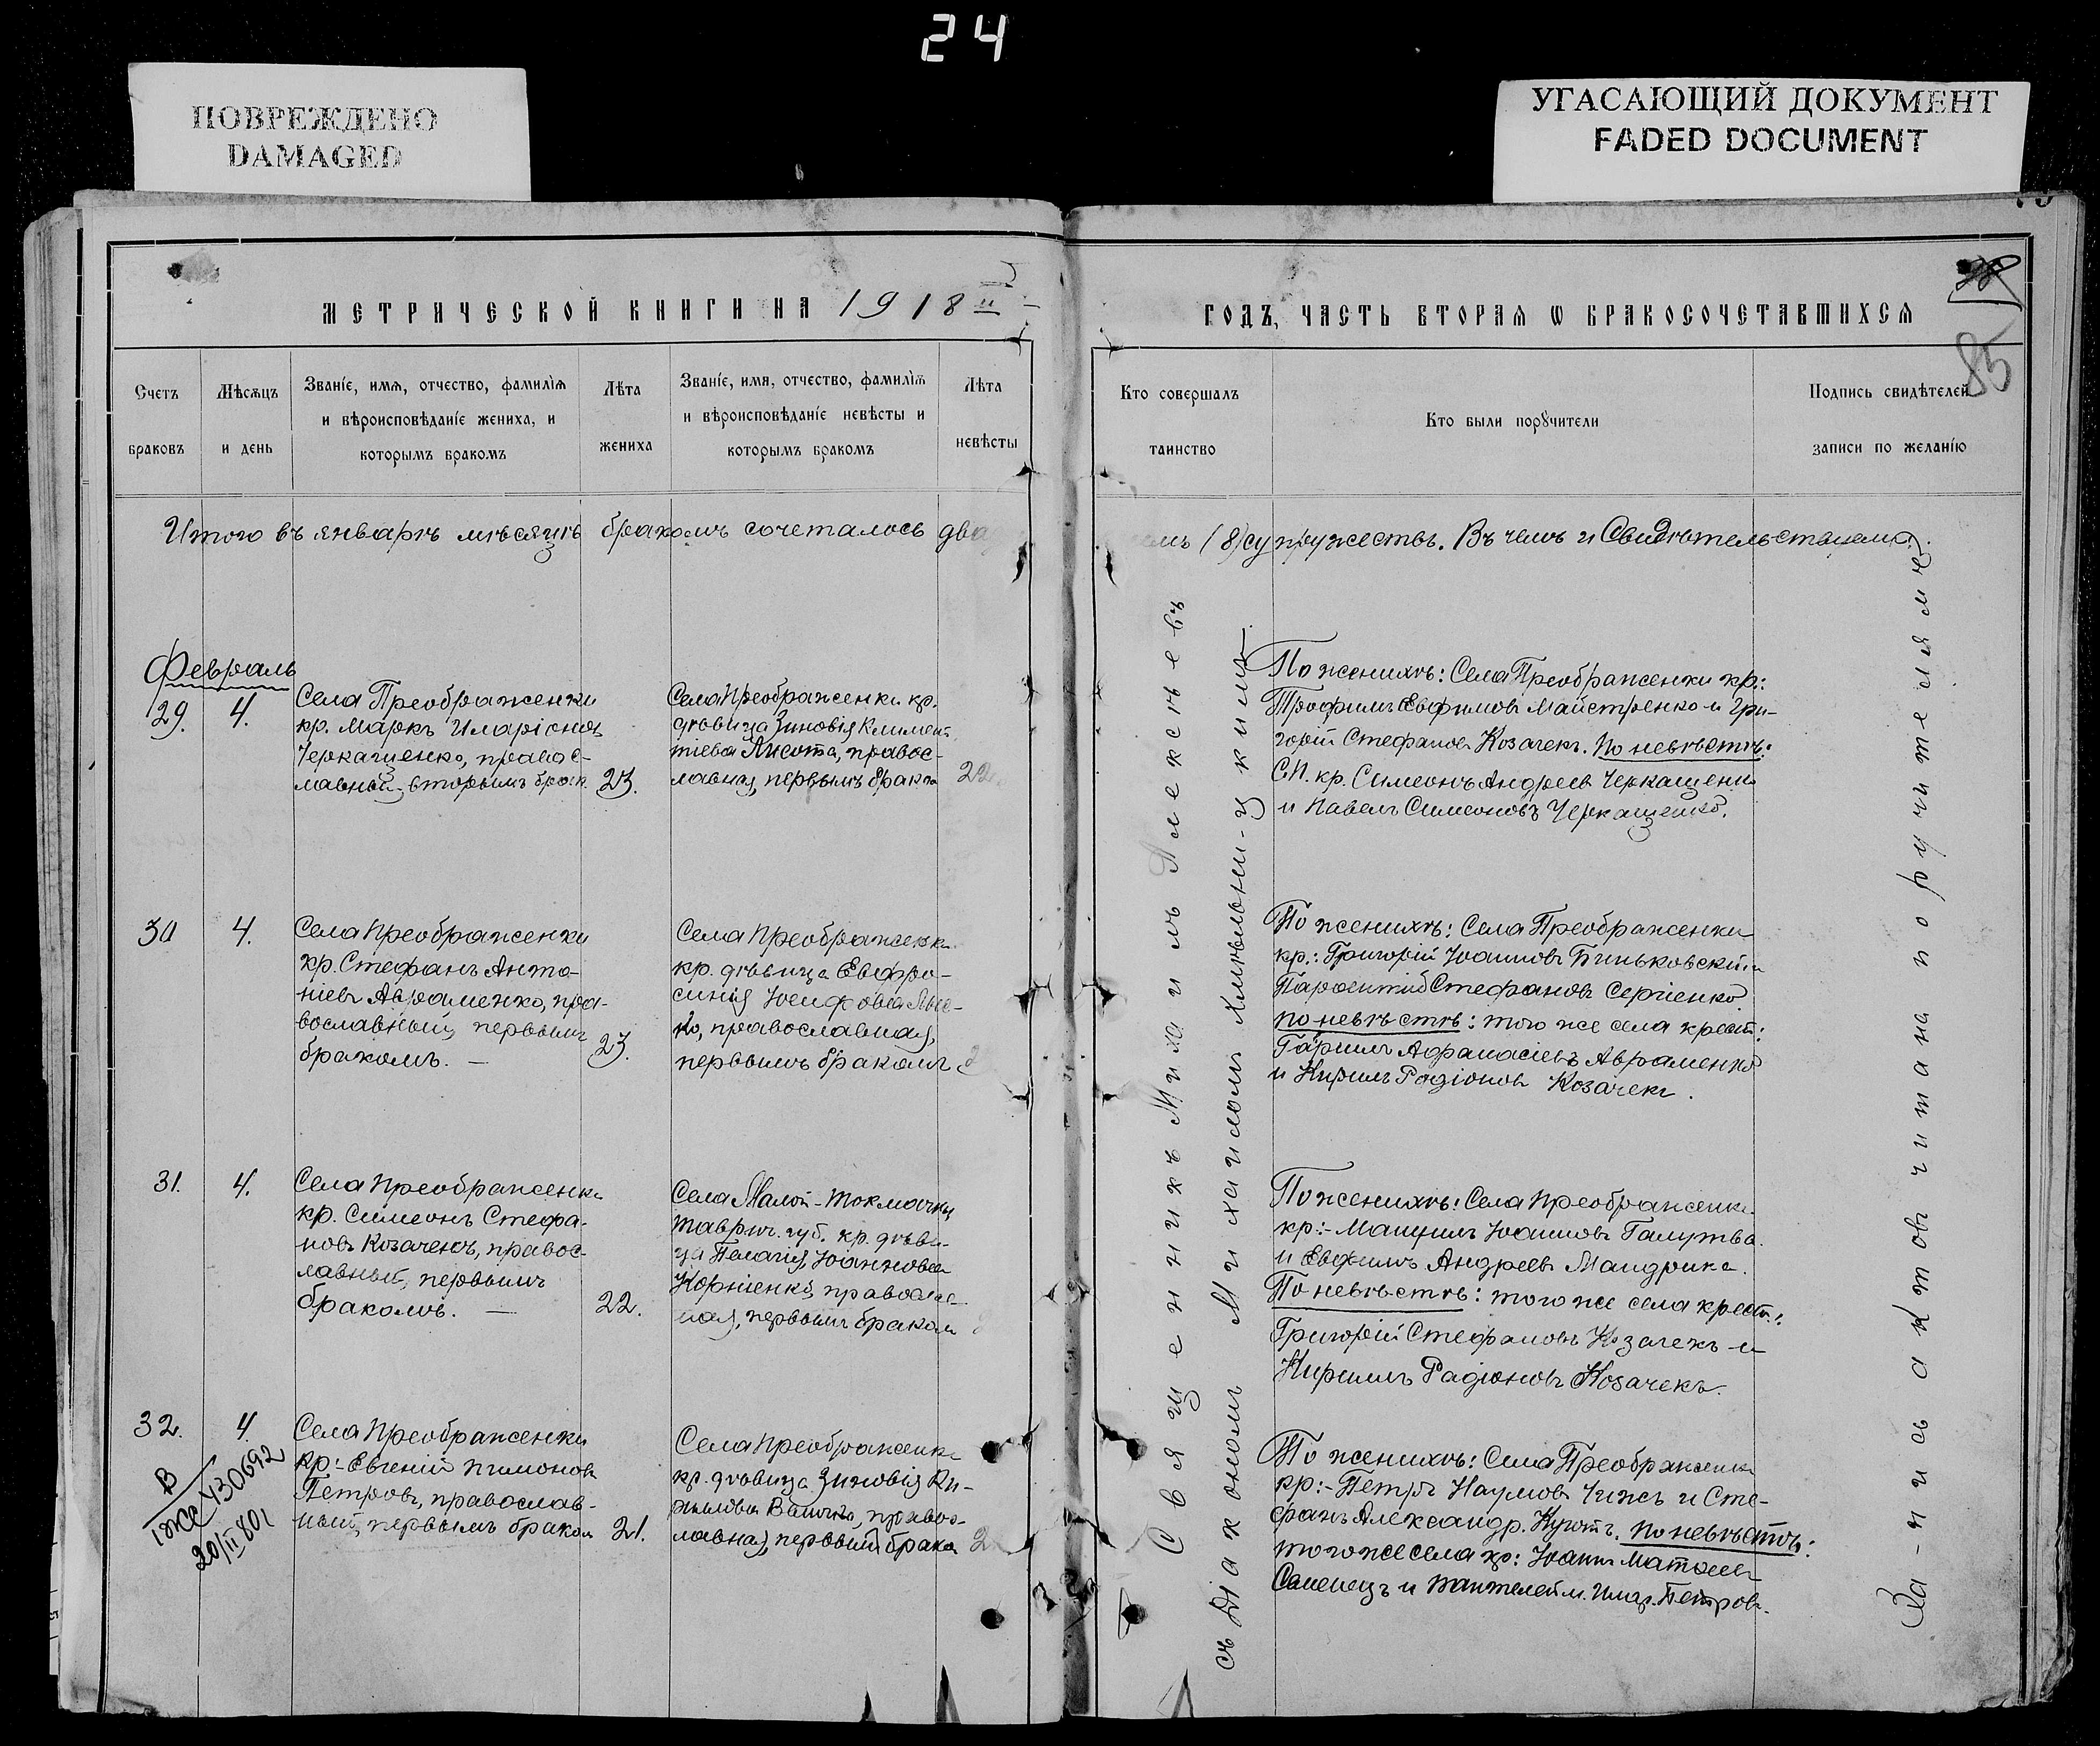 24
ПОВРЕЖДЕНО
DAMAGED
УГАСАЮЩИЙ ДОКУМЕНТ
FADED DOCUMENT
МЕТРИЧЕСКОЙ КНИГИ НА 1918
Счетъ
браковъ
Мѣсяцъ
и день
Званіе, имя, отчество, фамилія
и вѣроисповѣданіе жениха, и
которымъ бракомъ
Лѣта
жениха
Званіе, имя, отчество, фамилія
и вѣроисповѣданіе невѣсты и
которымъ бракомъ
Лѣта
невѣсты
Итого въ январѣ мѣсяцѣ бракомъ сочеталось
Февраль
29. 4.
Села Преображенки
кр. Маркъ Иларіоновъ
Черкащенко, правос-
лавный, вторымъ брак.
23.
Села Преображенки кр.
дѣвица Зиновія Климен
тіева Лисота, правос-
лавная, первымъ брако
22
30 4.
Села Преображенки
кр. Стефанъ Анто-
ніевъ Авраменко, пра-
вославный, первымъ
бракомъ. —
23.
Села Преображенки
кр. дѣвица Евфро-
синія Іосифова
православная,
первымъ бракомъ
31. 4.
Села Преображенки
кр. Симеонъ Стефа-
новъ Козаченъ, правос-
лавный, первымъ
бракомъ. —
22.
Села Малой-Токмачки
Таврич. губ. кр. дѣви-
ца Пелагія Іоаннова
Корніенко, правосла-
ная, первымъ браком
32. 4.
В
1ЖС 430692
20/II 80г
Села Преображенки
кр:- Евгеній Пимоновъ
Петровъ, православ-
ный, первымъ браком
21.
Села Преображенки
кр. дѣвица Зиновія Ки-
рилова правос-
лавная, первый брака
2
ГОДЪ, ЧАСТЬ ВТОРАЯ Ѡ БРАКОСОЧЕТАВШИХСЯ
85
Кто совершалъ
таинство
Кто были порꙋчители
Подпись свидѣтелей
записи по желанію
(8) супружествъ. Въ чемъ и Свидѣтельствуемъ.
Священникъ Михаилъ Алексѣевъ
съ Діакономъ Михаиломъ
По женихѣ: Села Преображенки кр:
Трофимъ Евфимовъ Майстренко и Гри-
горій Стефановъ Козачекъ. По невѣстѣ:
С.П. кр. Симеонъ Андреевъ Черкащенко
и Павелъ Симеоновъ Черкащенко.
По женихѣ: Села Преображенки
кр.: Григорій Іоанновъ Биньковскій и
Парфентій Стефановъ Сергіенко
По невѣстѣ: того же села крест:
Гаріилъ Афанасіевъ Авраменко
и Кирилъ Родіоновъ Козачекъ.
По женихѣ: Села Преображенки
кр:- Іоанновъ Галушва
и Евфимъ Андреевъ Мандрика.
По невѣстѣ: того же села крест.:
Григорій Стефановъ Козачекъ и
Кириллъ Радіоновъ Козачекъ.
По женихѣ: Села Преображенки
кр:- Петръ Наумовъ Чижъ и Сте-
фанъ Александр. По невѣстѣ:
того же села кр: Іоаннъ
Семенецъ и Пантелейм. Илар. Петровъ.
За-пись актовъ читана поручителямъ